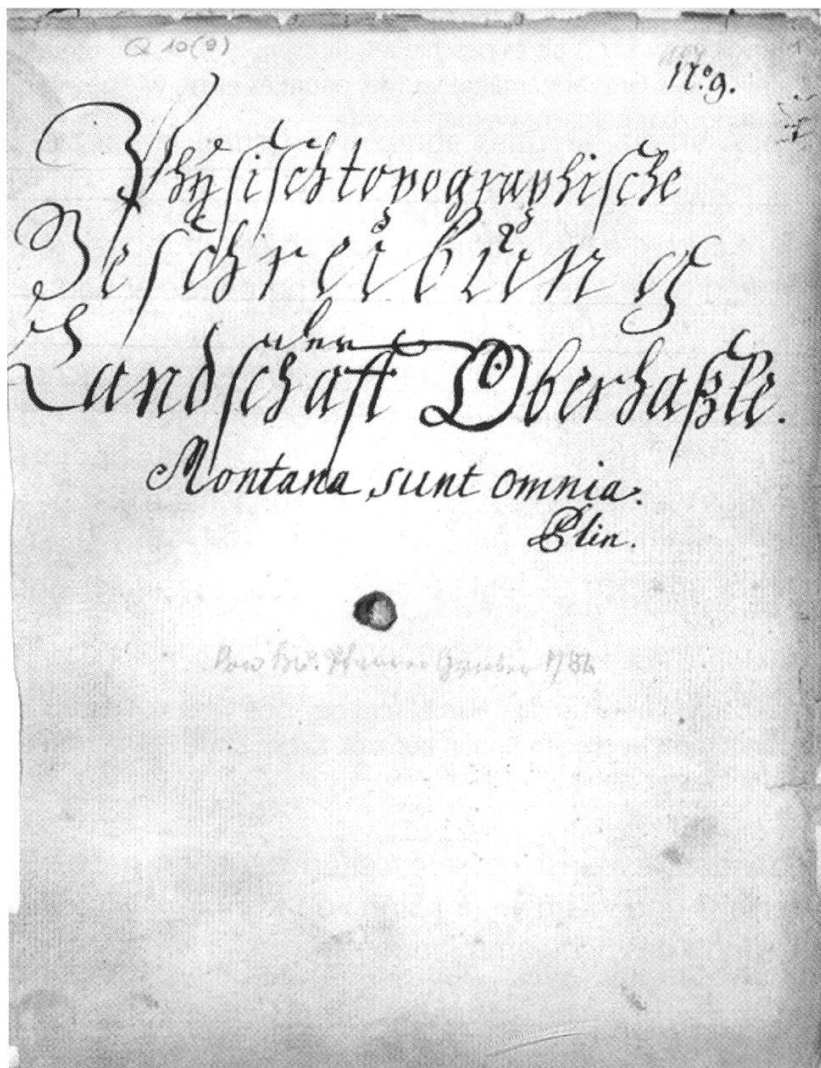 Q 10(9)
N.º 9.
Physisch topographische
Beschreibung
der
Landschafft Oberhaßle.
Montana sunt omnia.
Plin.
Pfarrer 1784